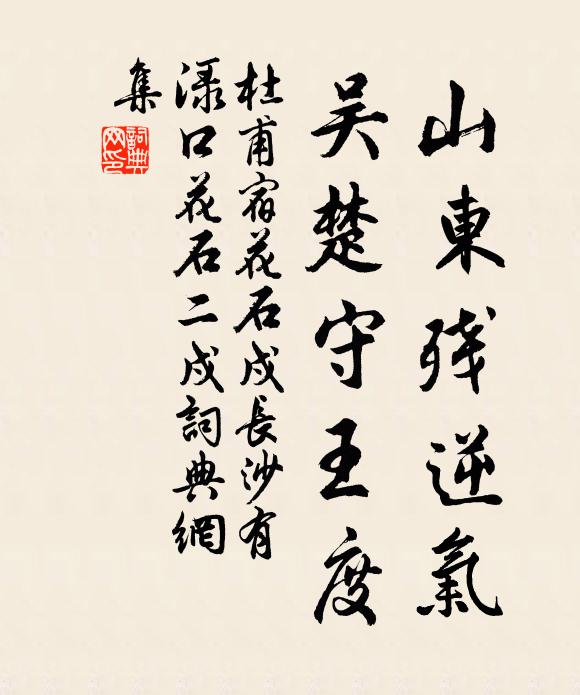 山東残逆氣
吴楚守王度
杜甫宿花石戍長沙有
渌口花石二戍詞典網
集
詞典网印